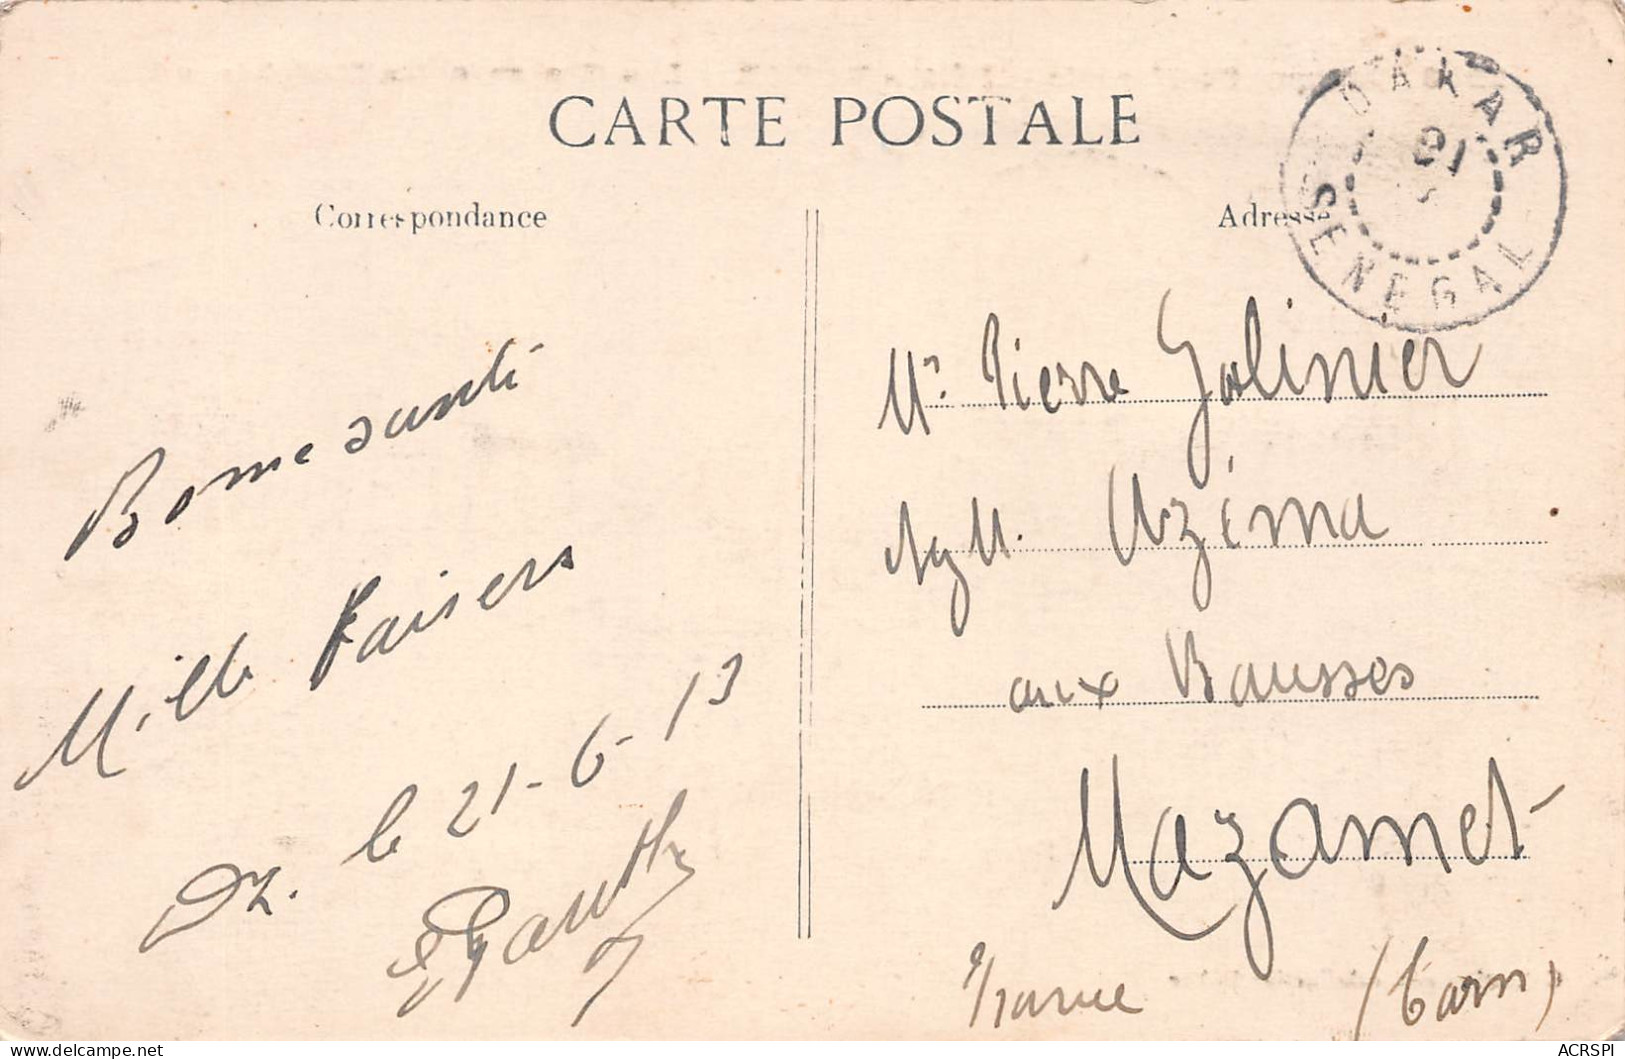 CARTE POSTALE
DAKAR
SENEGAL
Correspondance
Adresse
Bonne santé
Mille baisers
le 21-6-13
Mr. Pierre Galinier
Azéma
aux Bausses
Mazamet
France (Tarn)
ACRSPI